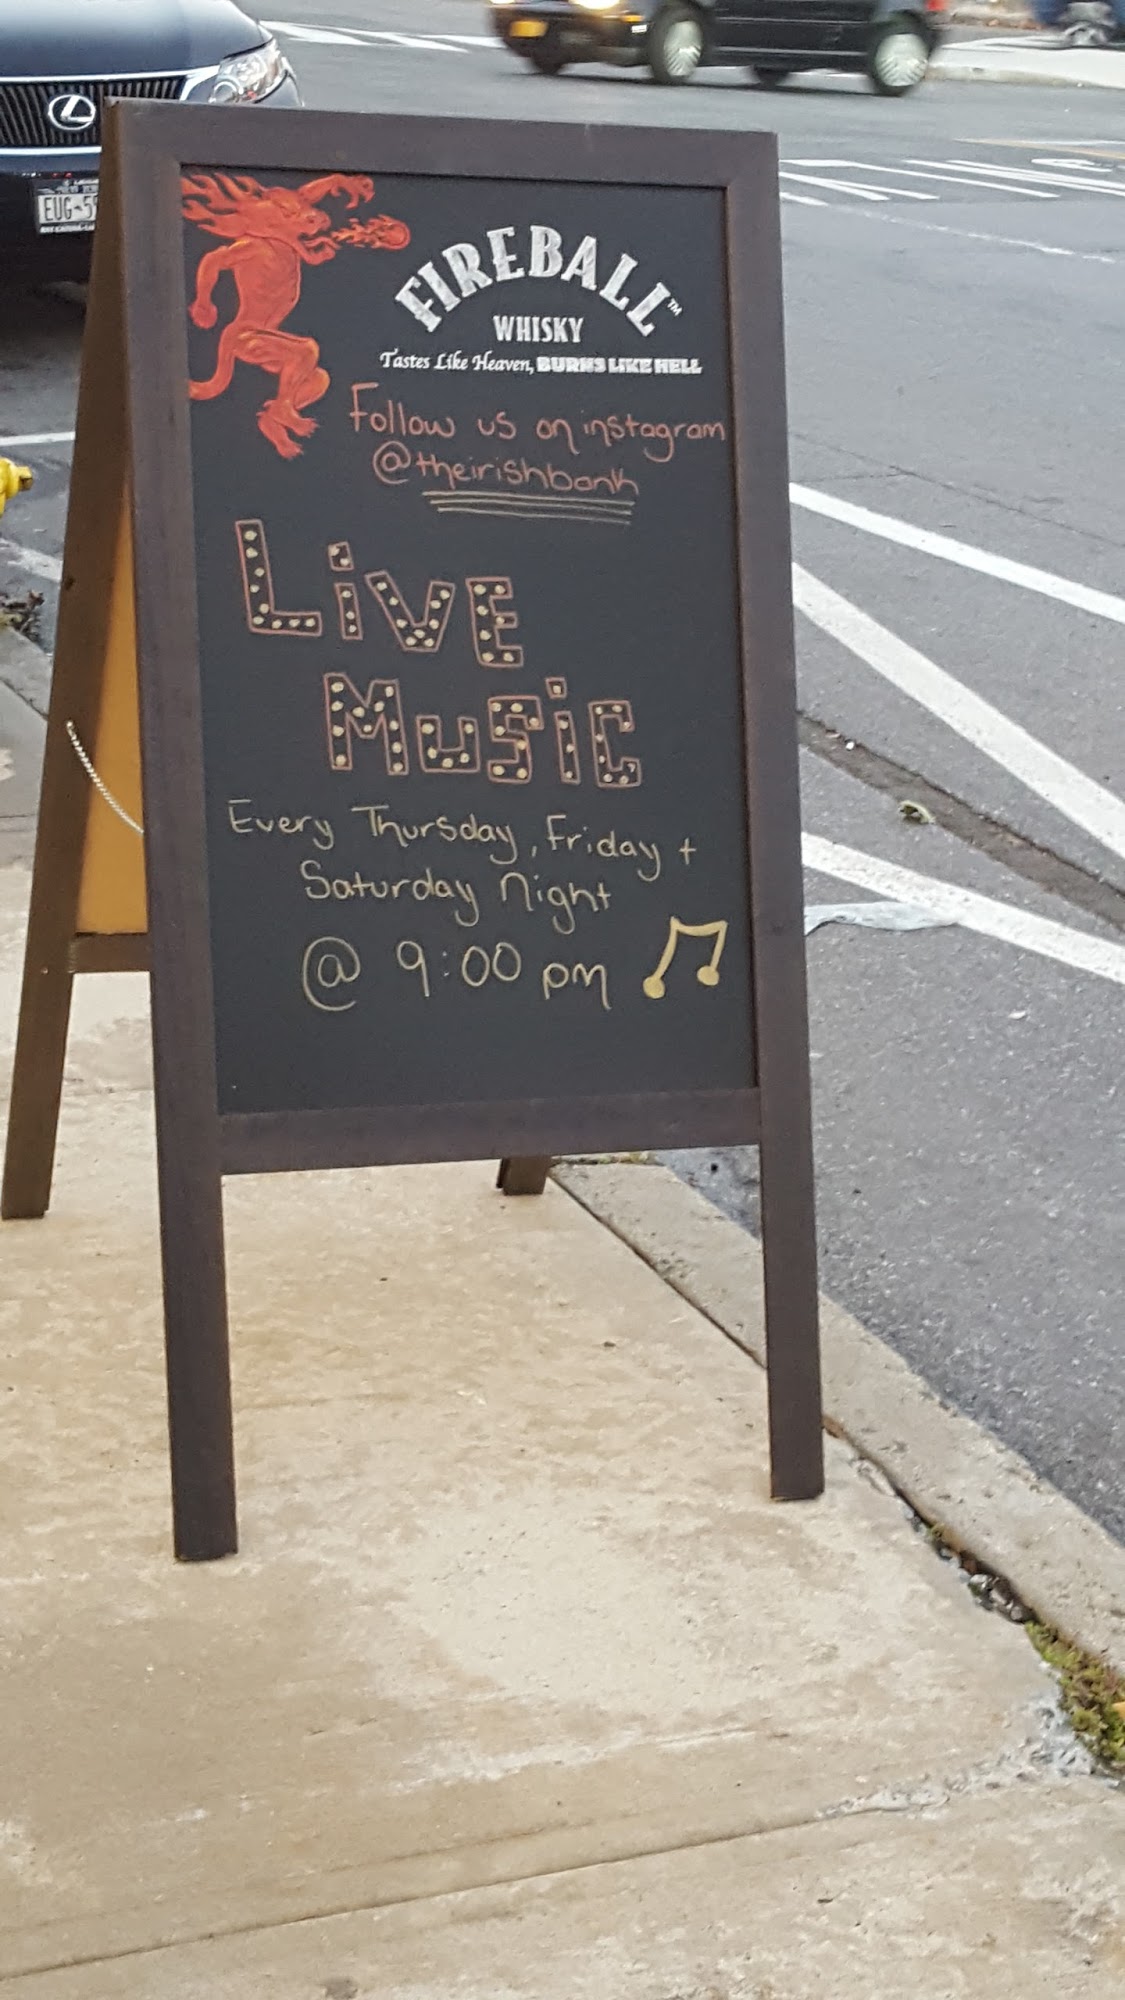 FIREBALL™
WHISKY
Tastes Like Heaven, BURNS LIKE HELL
Follow us on instagram
@theirishbank
Live
Music
Every Thursday, Friday +
Saturday night
@ 9:00 pm
EUG-59